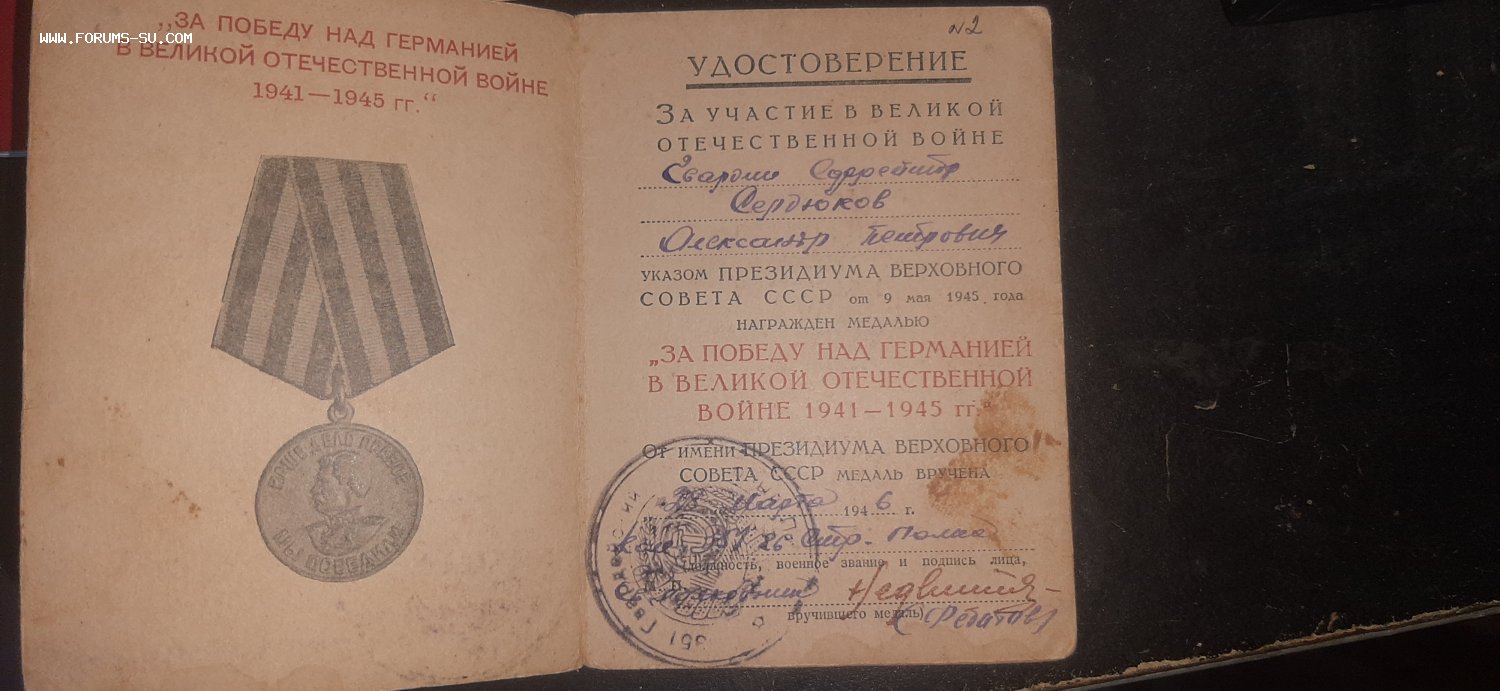 www.forums-su.com
„ЗА ПОБЕДУ НАД ГЕРМАНИЕЙ
В ВЕЛИКОЙ ОТЕЧЕСТВЕННОЙ ВОЙНЕ
1941—1945 гг.“
НАШЕ ДЕЛО ПРАВОЕ
МЫ ПОБЕДИЛИ
N2
УДОСТОВЕРЕНИЕ
ЗА УЧАСТИЕ В ВЕЛИКОЙ
ОТЕЧЕСТВЕННОЙ ВОЙНЕ
Сердюков
Олександр Петрович
УКАЗОМ ПРЕЗИДИУМА ВЕРХОВНОГО
СОВЕТА СССР от 9 мая 1945 года
НАГРАЖДЕН МЕДАЛЬЮ
„ЗА ПОБЕДУ НАД ГЕРМАНИЕЙ
В ВЕЛИКОЙ ОТЕЧЕСТВЕННОЙ
ВОЙНЕ 1941—1945 гг.“
ОТ ИМЕНИ ПРЕЗИДИУМА ВЕРХОВНОГО
СОВЕТА СССР МЕДАЛЬ ВРУЧЕНА
марта 1946 г.
Стр. Полка
(должность, военное звание и подпись лица,
вручившего медаль)